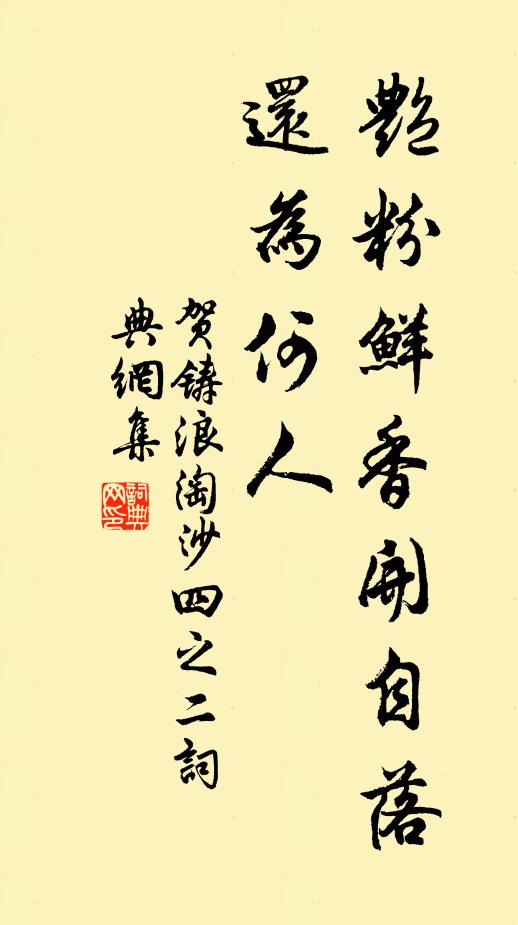 艷粉鮮香開自落
還為何人
賀鑄浪淘沙四之二詞
典網集
詞典
网印